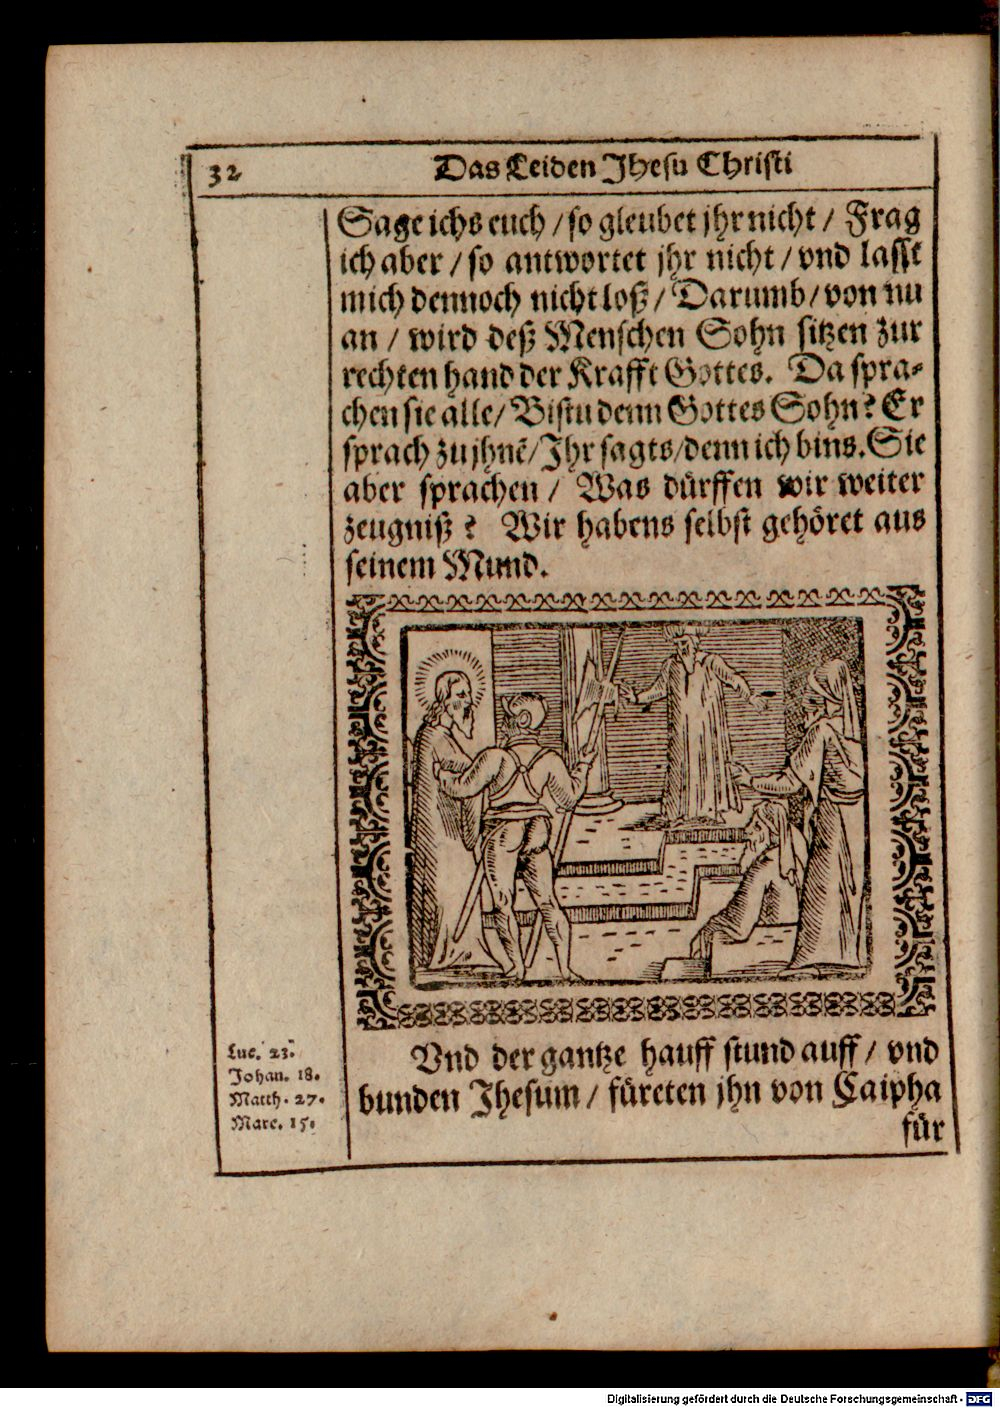 32 Das Leiden Jhesu Christi
Sage ichs euch / so gleubet jhr nicht / Frag
ich aber / so antwortet jhr nicht / vnd lasst
mich dennoch nicht loß / Darumb / von nu
an / wird deß Menschen Sohn sitzen zur
rechten hand der Krafft Gottes. Da spra-
chen sie alle / Bistu denn Gottes Sohn? Er
sprach zu jhnē / Ihr sagts / denn ich bins. Sie
aber sprachen / Was dürffen wir weiter
zeugniß? Wir habens selbst gehöret aus
seinem Mund.
Luc. 23.
Johan. 18.
Matth. 27.
Marc. 15.
Vnd der gantze hauff stund auff / vnd
bunden Jhesum / füreten jhn von Caipha
für
Digitalisierung gefördert durch die Deutsche Forschungsgemeinschaft - DFG